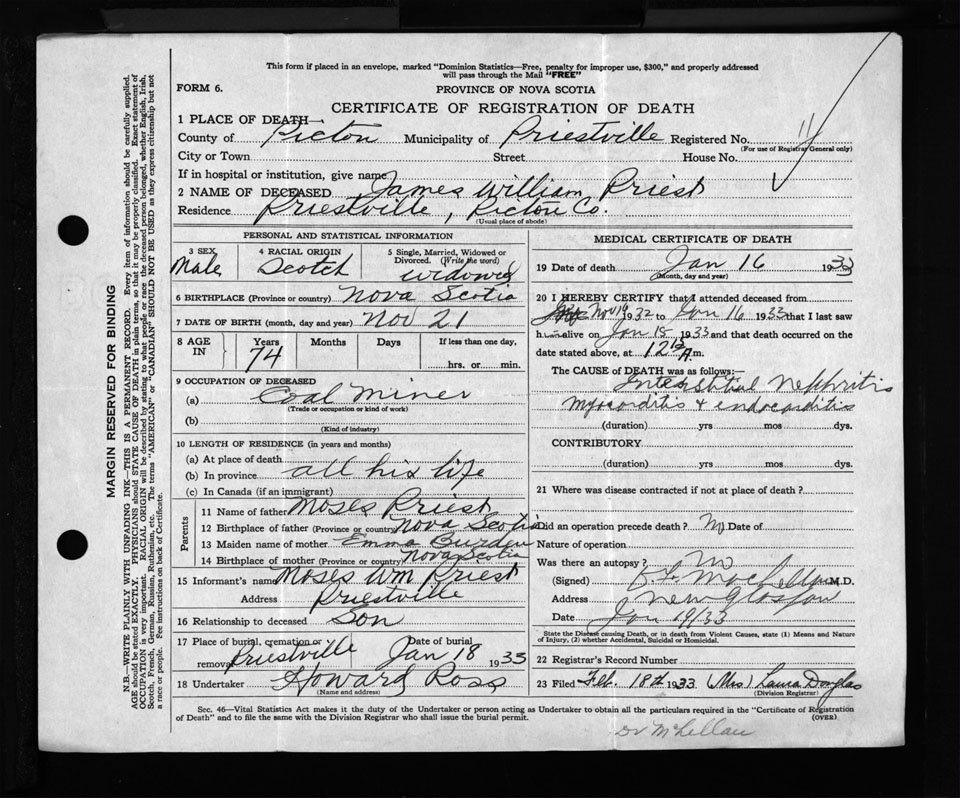 This form if placed in an envelope, marked "Dominion Statistics—Free, penalty for improper use, $300," and properly addressed
will pass through the Mail "FREE"
FORM 6. PROVINCE OF NOVA SCOTIA
CERTIFICATE OF REGISTRATION OF DEATH
1 PLACE OF DEATH—
County of Pictou Municipality of Priestville Registered No. 11
(For use of Registrar General only)
City or Town Street House No.
If in hospital or institution, give name
2 NAME OF DECEASED James William Priest
Residence Priestville, Pictou Co.
(Usual place of abode)
PERSONAL AND STATISTICAL INFORMATION
3 SEX 4 RACIAL ORIGIN 5 Single, Married, Widowed or
Divorced. (Write the word)
Male Scotch widowed
6 BIRTHPLACE (Province or country) Nova Scotia
7 DATE OF BIRTH (month, day and year) Nov 21
8 AGE IN Years Months Days If less than one day,
74 hrs. or min.
9 OCCUPATION OF DECEASED
(a) Coal Miner
(Trade or occupation or kind of work)
(b)
(Kind of industry)
10 LENGTH OF RESIDENCE (in years and months)
(a) At place of death
(b) In province all his life
(c) In Canada (if an immigrant)
Parents
11 Name of father Moses Priest
12 Birthplace of father (Province or country) Nova Scotia
13 Maiden name of mother Emma Burden
14 Birthplace of mother (Province or country) Nova Scotia
15 Informant's name Moses Wm Priest
Address Priestville
16 Relationship to deceased Son
17 Place of burial, cremation or removal Priestville Date of burial Jan 18 1933
18 Undertaker Howard Ross
(Name and address)
MEDICAL CERTIFICATE OF DEATH
19 Date of death Jan 16 1933
(Month, day and year)
20 I HEREBY CERTIFY that I attended deceased from
Nov 16 1932 to Jan 16 1933 that I last saw
him alive on Jan 15 1933 and that death occurred on
date stated above, at 12 A.m.
The CAUSE OF DEATH was as follows:—
Interstitial Nephritis
myocarditis & endocarditis
(duration) yrs mos dys.
CONTRIBUTORY
(duration) yrs mos dys.
21 Where was disease contracted if not at place of death?
Did an operation precede death? No Date of
Nature of operation
Was there an autopsy? No
(Signed) M.D.
Address New Glasgow
Date Jan 19/33
State the Disease causing Death, or in death from Violent Causes, state (1) Means and Nature
of Injury, (2) whether Accidental, Suicidal or Homicidal.
22 Registrar's Record Number
23 Filed Feb. 18th 1933 (Mrs) Laura Douglas
(Division Registrar)
Sec. 46—Vital Statistics Act makes it the duty of the Undertaker or person acting as Undertaker to obtain all the particulars required in the "Certificate of Registration
of Death" and to file the same with the Division Registrar who shall issue the burial permit. (OVER)
Dr McLellan
MARGIN RESERVED FOR BINDING
N.B.—WRITE PLAINLY WITH UNFADING INK—THIS IS A PERMANENT RECORD. Every item of information should be carefully supplied.
AGE should be stated EXACTLY. PHYSICIANS should STATE CAUSE OF DEATH in plain terms, so that it may be properly classified. Exact statement of
OCCUPATION is very important. RACIAL ORIGIN will be described by stating to what people or race the deceased person belonged, whether English, Irish,
Scotch, French, German, Russian, Ruthenian, etc. The terms "AMERICAN" or "CANADIAN" SHOULD NOT BE USED as they express citizenship but not
a race or people. See instructions on back of Certificate.